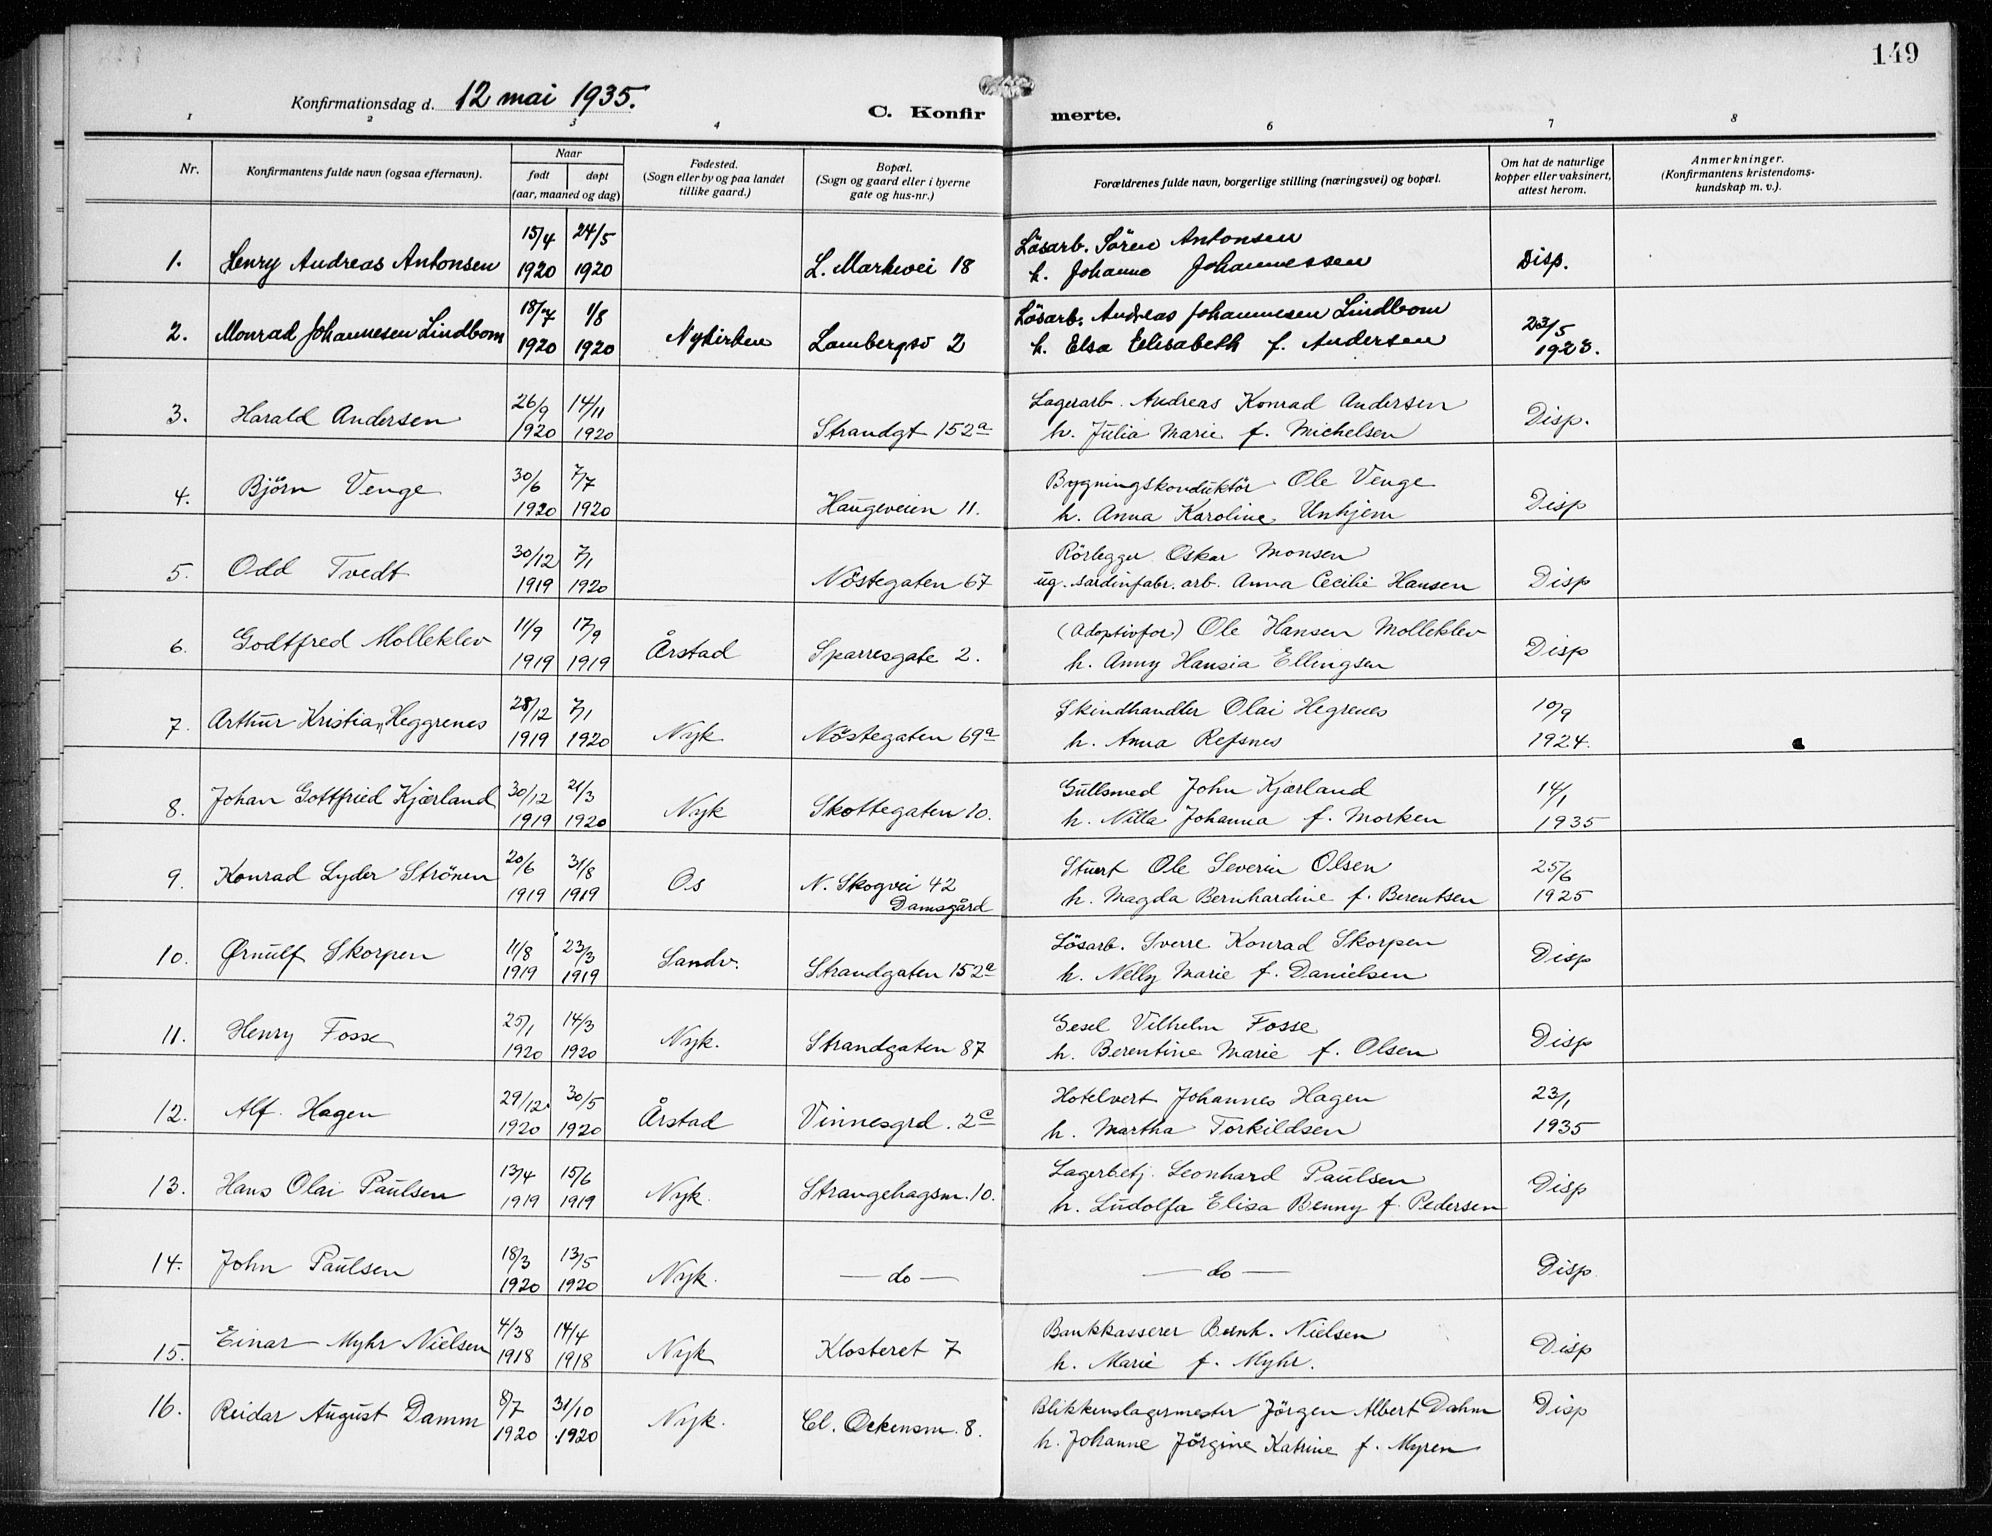 149
Konfirmationsdag d. 12 mai 1935.
C. Konfirmerte.
1 2 3 4 6 7 8
Nr. Konfirmantens fulde navn (ogsaa efternavn). Naar født døpt (aar, maaned og dag) Fødested. (Sogn eller by og paa landet tillike gaard.) Bopæl. (Sogn og gaard eller i byerne gate og hus-nr.) Forældrenes fulde navn, borgerlige stilling (næringsvei) og bopæl. Om hat de naturlige kopper eller vaksinert, attest herom. Anmerkninger. (Konfirmantens kristendomskundskap m. v.).
15/4 24/5 Lösarb. Sören Antonsen
1. Henry Andreas Antonsen 1920 1920 L. Markevei 18 h. Johanne Johannessen Disp.
18/7 1/8 Lösarb. Andreas Johannesen Lindbom 23/5
2. Monrad Johannesen Lindbom 1920 1920 Nykirken Lambergsv 2 h. Elsa Elisabeth f. Andersen 1928.
26/9 14/11 Lagerarb. Andreas Konrad Andersen
3. Harald Andersen 1920 1920 Strandgt 152a h. Julia Marie f. Michelsen Disp.
30/6 7/7 Bygningskonduktör Ole Venge
4. Björn Venge 1920 1920 Haugeveien 11. h. Anna Karoline Unhjem Disp
30/12 7/1 Rörlegger Oskar Monsen
5. Odd Tvedt 1919 1920 Nöstegaten 67 ug. sardinfabr. arb. Anna Cecilie Hansen Disp
11/9 17/9 (Adoptivfor) Ole Hansen Molleklev
6. Godtfred Molleklev 1919 1919 Årstad Sparresgate 2. h. Anny Hansia Ellingsen Disp
28/12 7/1 Skindhandler Olai Hegrenes 10/9
7. Arthur Kristian Heggrenes 1919 1920 Nyk Nöstegaten 69a h. Anna Refsnes 1924.
30/12 21/3 Gullsmed John Kjærland 14/1
8. Johan Gottfried Kjærland 1919 1920 Nyk Skottegaten 10. h. Nilla Johanna f. Morken 1935
20/6 31/8 Stuert Ole Severin Olsen 25/6
9. Konrad Lyder Strönen 1919 1919 Os N. Skogvei 42 Damsgård h. Magda Bernhardine f. Berentsen 1925
11/8 23/3 Lösarb. Sverre Konrad Skorpen
10. Ørnulf Skorpen 1919 1919 Sandv. Strandgaten 152a h. Nelly Marie f. Danielsen Disp
25/1 14/3 Gesel Vilhelm Fosse
11. Henry Fosse 1920 1920 Nyk. Strandgaten 87 h. Berentine Marie f. Olsen Disp
29/12 30/5 Hotelvert Johannes Hagen 23/1
12. Alf Hagen 1920 1920 Årstad Vinnesgrd. 2c h. Martha Torkildsen 1935
13/4 15/6 Lagerbetj. Leonhard Paulsen
13. Hans Olai Paulsen 1919 1919 Nyk. Strangehagsm. 10. h. Ludolfa Elisa Benny f. Pedersen Disp
18/3 13/5
14. John Paulsen 1920 1920 Nyk. — do — — do — Disp
4/3 14/4 Bankkasserer Bernh. Nielsen
15. Einar Myhr Nielsen 1918 1918 Nyk Klosteret 7 h. Marie f. Myhr. Disp
8/7 31/10 Blikkenslagermester Jörgen Albert Dahm
16. Reidar August Damm 1920 1920 Nyk. Cl. Ockensm. 8. h. Johanne Jörgine Katrine f. Myren Disp